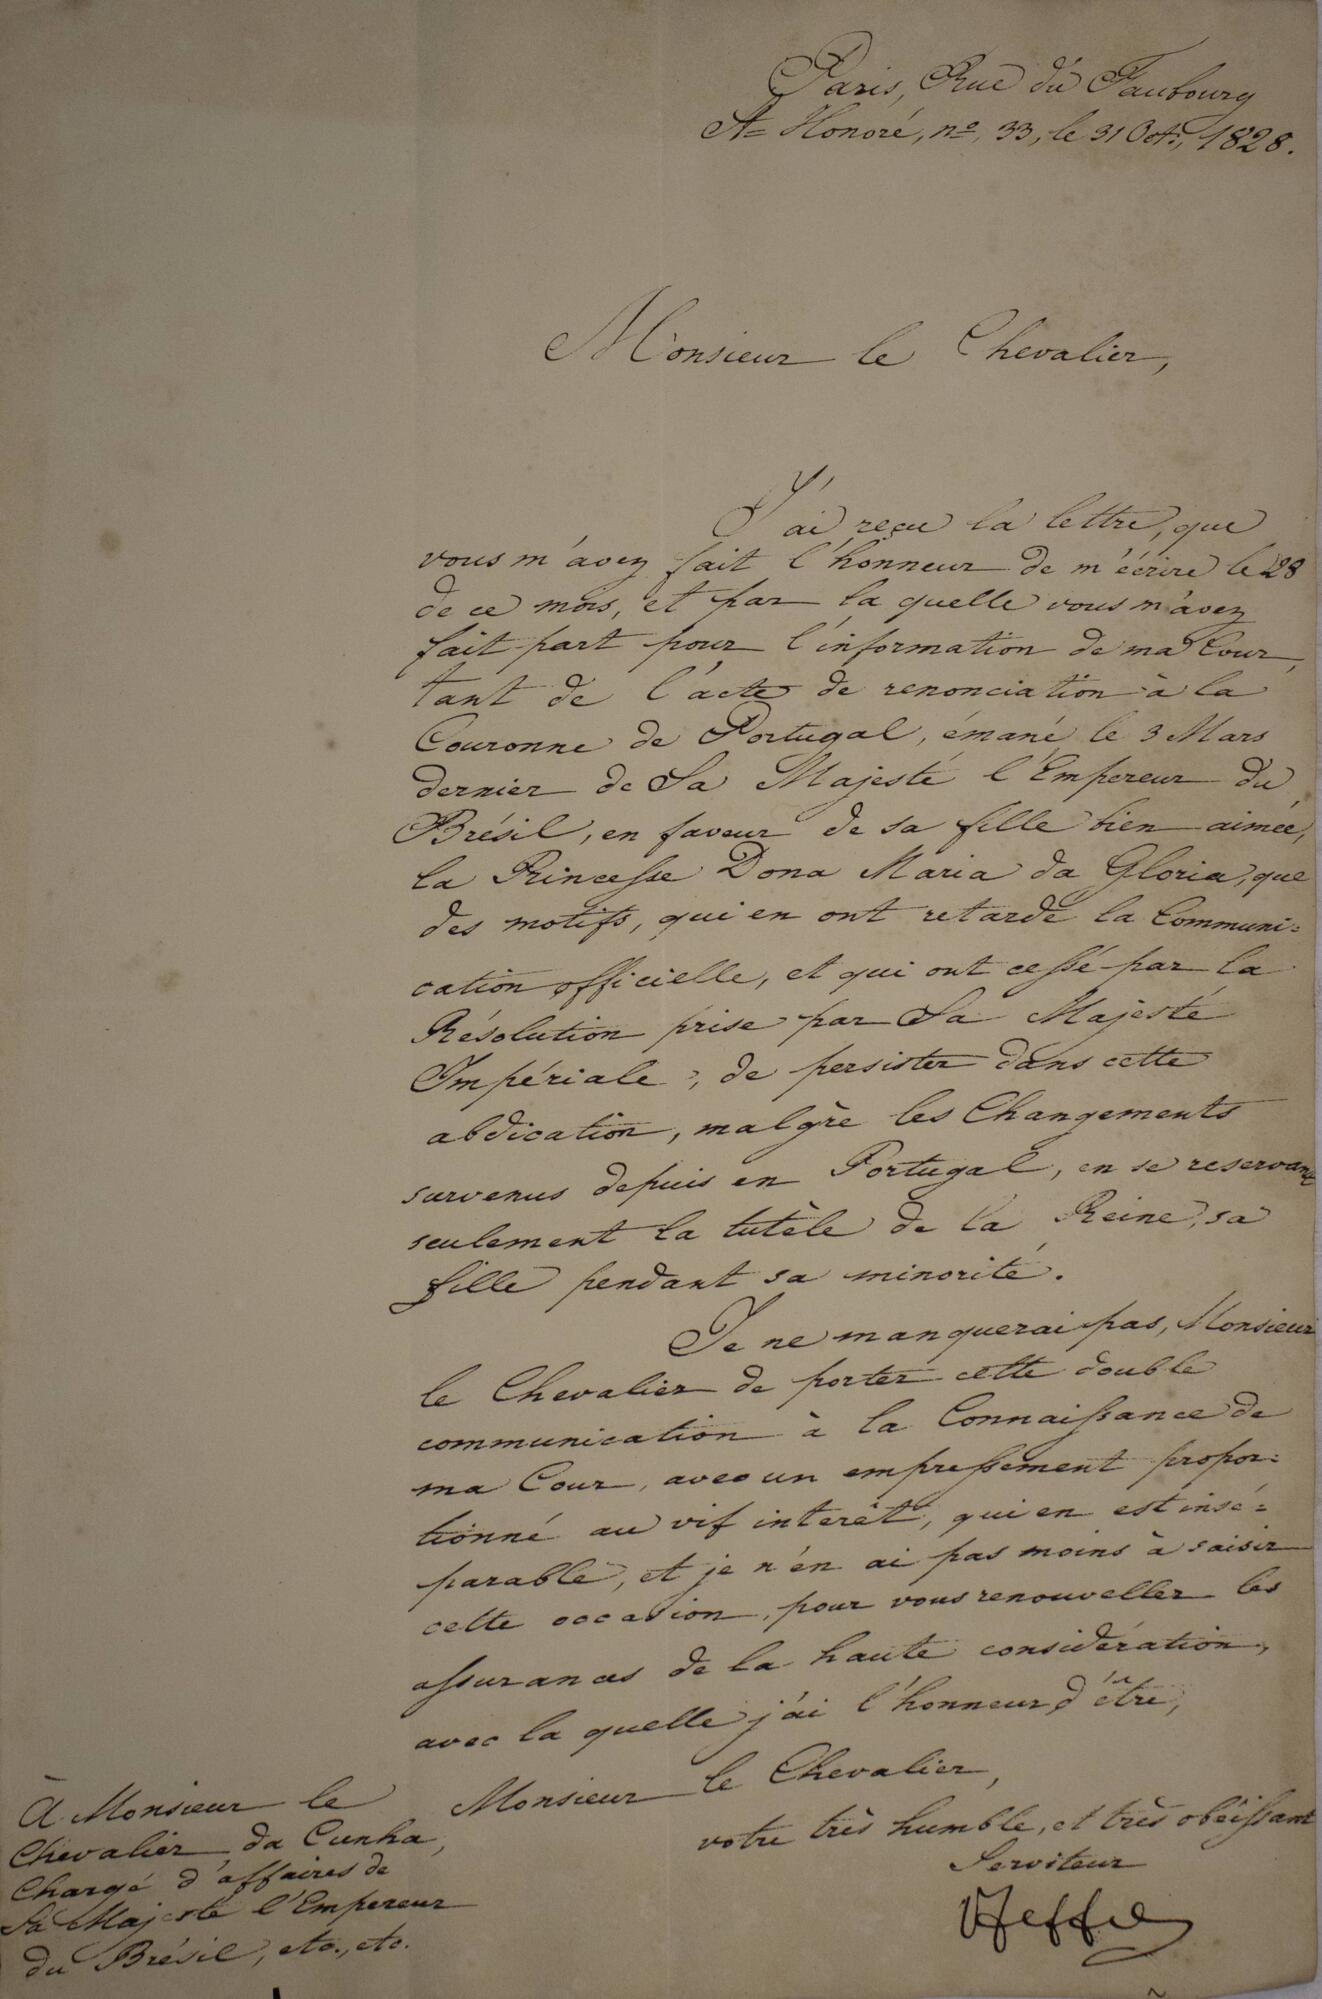 Paris, Rue du Faubourg
St Honoré, no. 33, le 31 Oct., 1828.
Monsieur le Chevalier,
J'ai reçu la lettre, que
vous m'avez fait l'honneur de m'écrire le 28
de ce mois, et par la quelle vous m'avez
fait part pour l'information de ma Cour,
tant de l'acte de renonciation à la
Couronne de Portugal, émané le 3 Mars
dernier de Sa Majesté l'Empereur du
Brésil, en faveur de sa fille bien aimée,
la Princesse Dona Maria da Gloria, que
des motifs, qui en ont retardé la Communi=
cation officielle, et qui ont cessé par la
Résolution prise par Sa Majesté
Impériale, de persister dans cette
abdication, malgrè les Changements
survenus depuis en Portugal, en se reservant
seulement la tutèle de la Reine, sa
fille pendant sa minorité.
Je ne manquerai pas, Monsieur
le Chevalier de porter cette double
communication à la Connaissance de
ma Cour, avec un empressement propor=
tionné au vif interêt, qui en est insé=
parable, et je n'en ai pas moins à saisir
cette occasion, pour vous renouveller les
assurances de la haute considération,
avec la quelle j'ai l'honneur d'être,
Monsieur le Chevalier,
votre très humble, et très obéissant
Serviteur
À Monsieur le
Chevalier da Cunha,
Chargé d'affaires de
Sa Majesté l'Empereur
du Brésil, etc., etc.